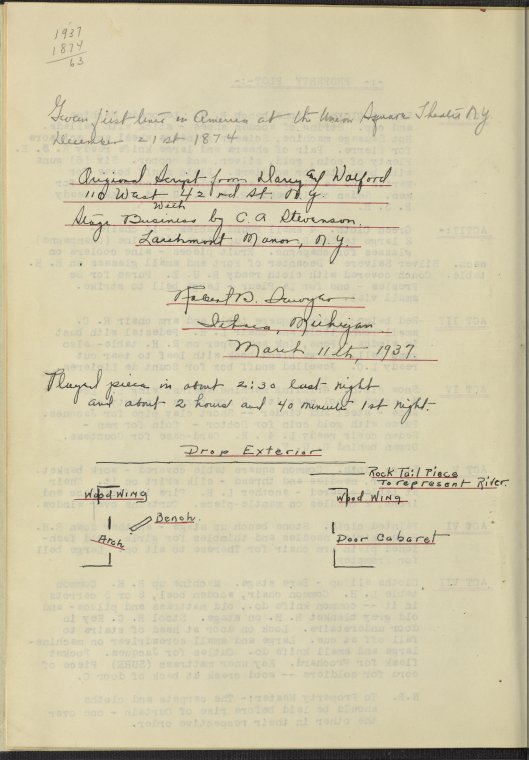 1937
1874
63
Given first time in America at the Union Square Theatre N.Y
December 21st 1874
Original Script from Darcy and Wolford
110 West 42nd St. N.Y.
With
Stage Business by C. A Stevenson
Larchmont Manor, N.Y.
Robert D.
Ithaca, Michigan
March 11th, 1937.
Played piece in about 2:30 last night
and about 2 hours and 40 minutes 1st night.
Drop Exterior
Rock Tail Piece
To represent River.
Wood Wing
Wood Wing
Bench
Arch
Door Cabaret